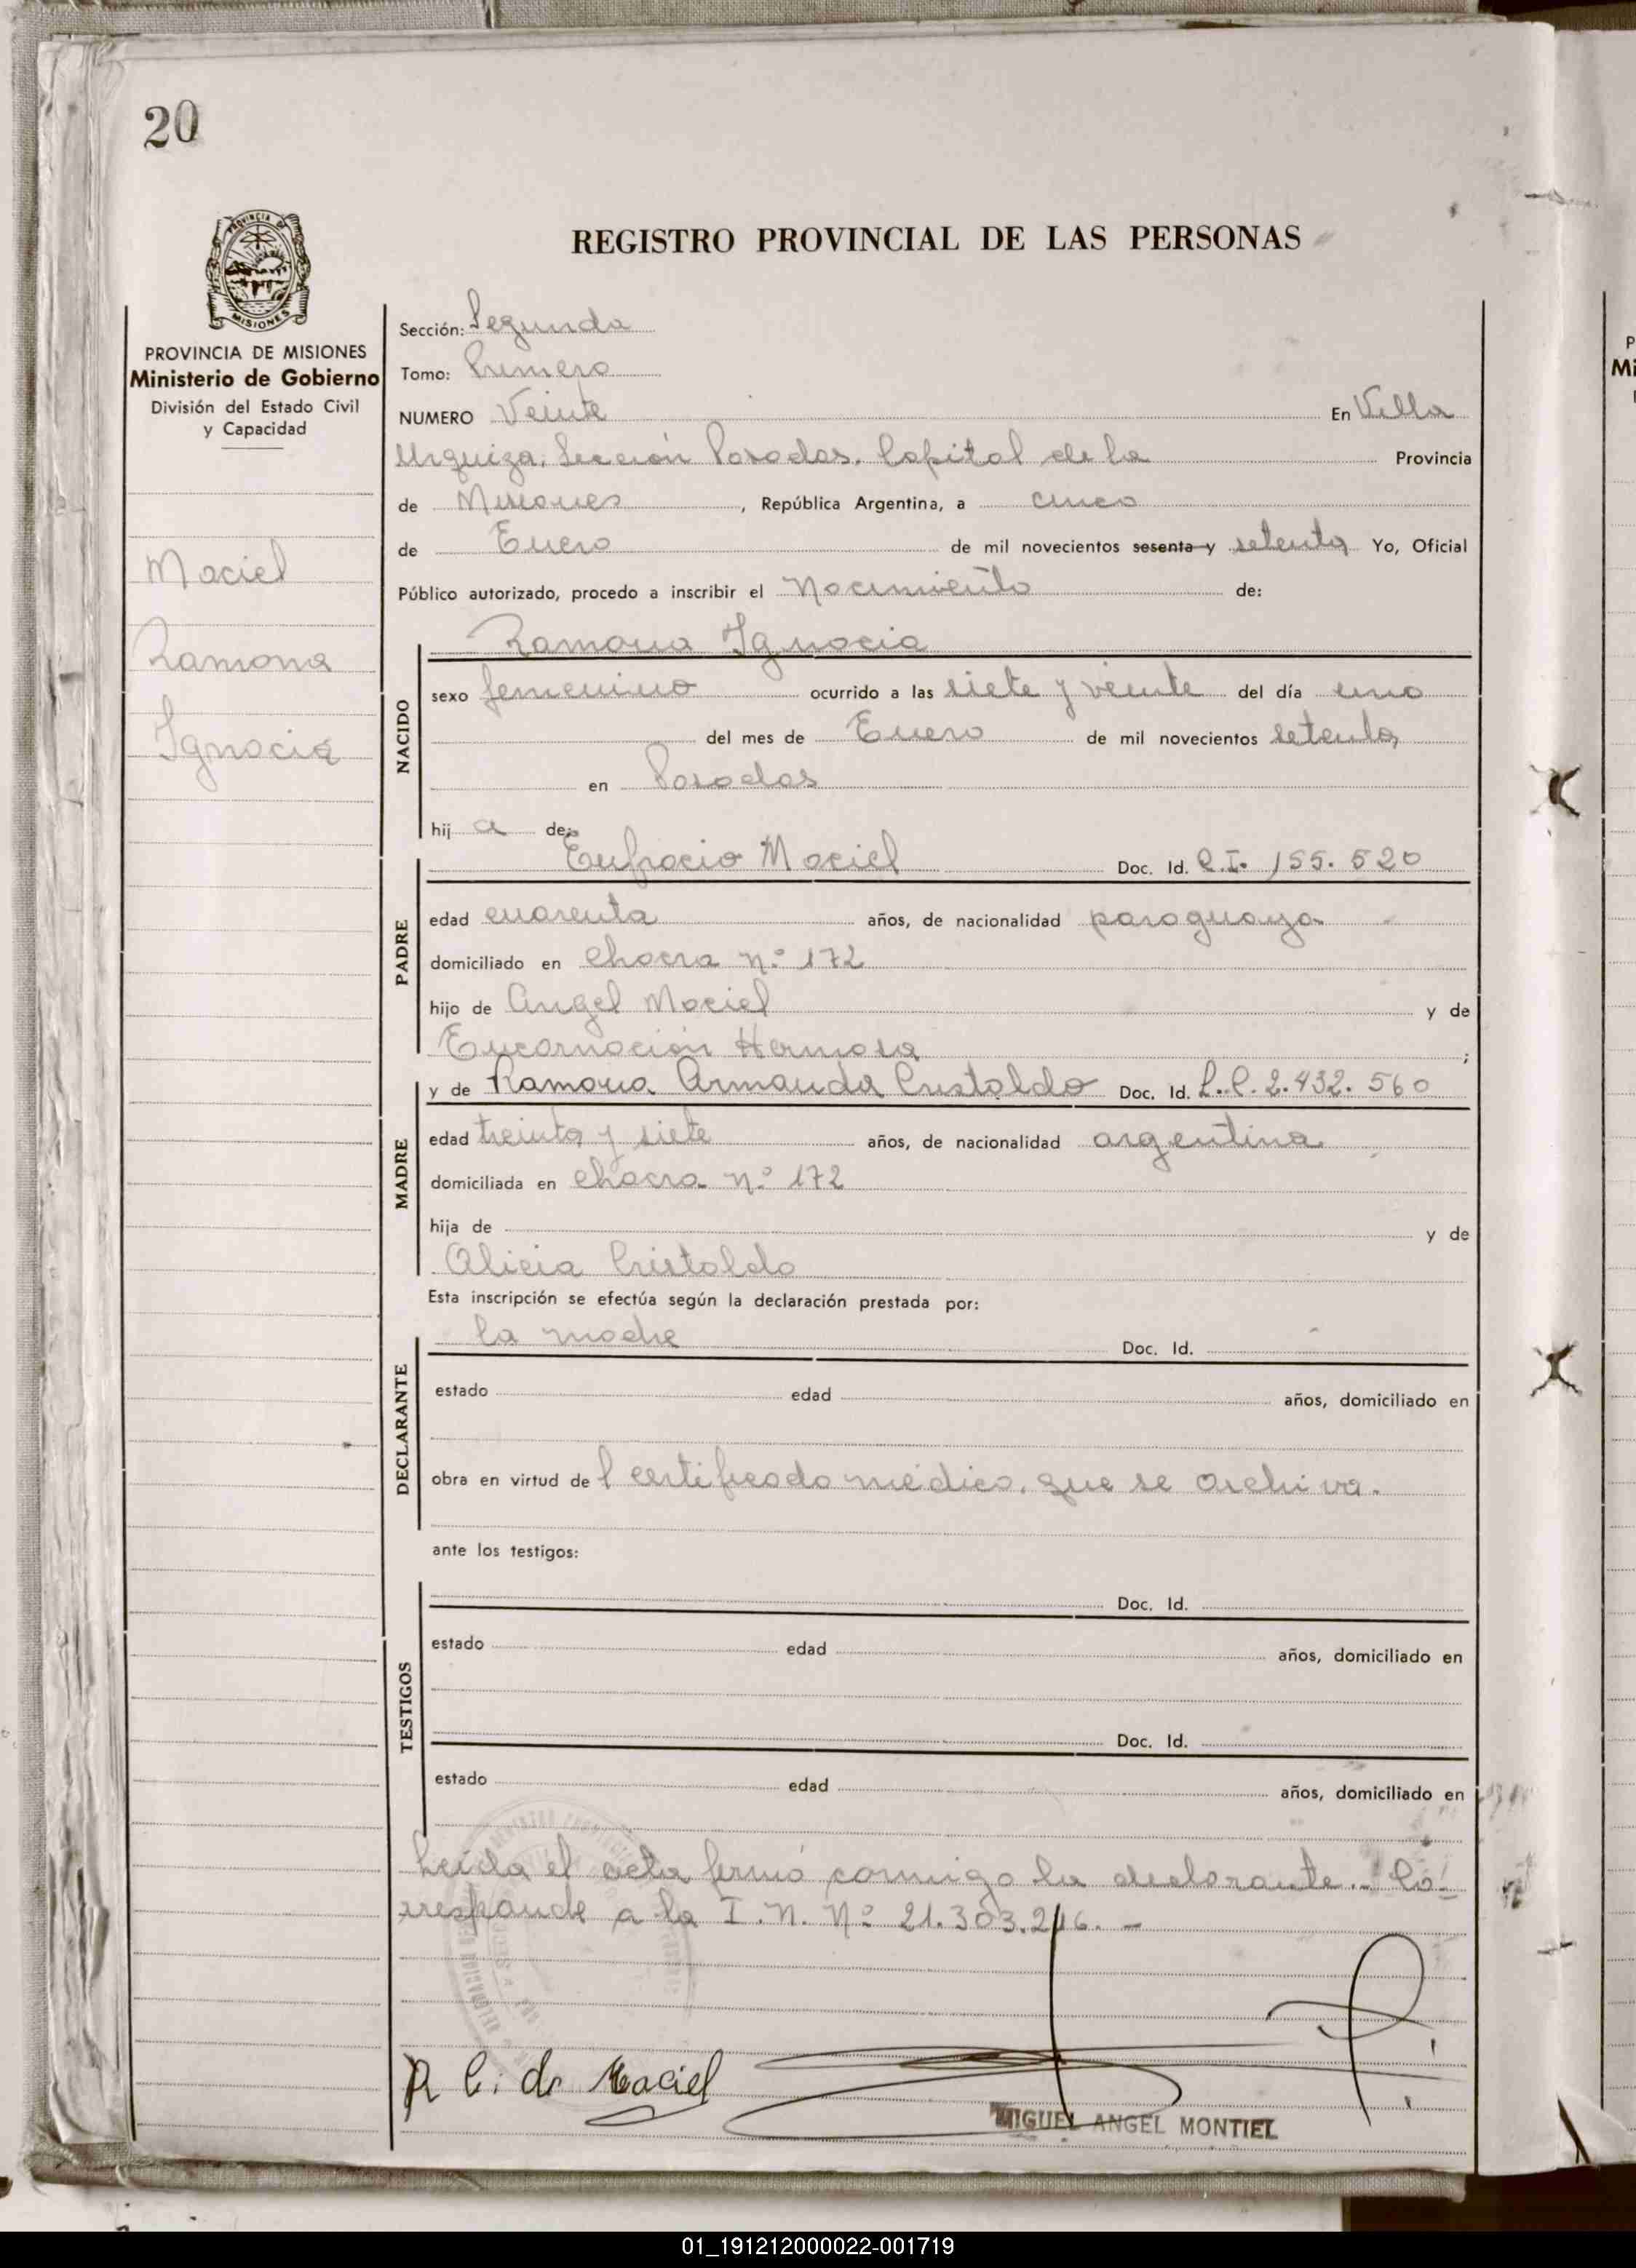 20
PROVINCIA DE
MISIONES
REGISTRO PROVINCIAL DE LAS PERSONAS
PROVINCIA DE MISIONES
Ministerio de Gobierno
División del Estado Civil
y Capacidad
Maciel
Ramona
Ignacia
Sección: Segunda
Tomo: Primero
NUMERO Veinte En Villa
Urquiza, Sección Posadas, Capital de la Provincia
de Misiones, República Argentina, a cinco
de Enero de mil novecientos sesenta y setenta Yo, Oficial
Público autorizado, procedo a inscribir el Nacimiento de:
NACIDO
Ramona Ignacia
sexo femenino ocurrido a las siete y veinte del día uno
del mes de Enero de mil novecientos setenta
en Posadas
hij a de:
PADRE
Eufracio Maciel Doc. Id. C.I. 155.520
edad cuarenta años, de nacionalidad paraguaya
domiciliado en chacra n.º 172
hijo de Angel Maciel y de
Encarnación Hermosa;
MADRE
y de Ramona Armanda Cristaldo Doc. Id. L.C. 2.432.560
edad treinta y siete años, de nacionalidad argentina
domiciliada en chacra n.º 172
hija de y de
Alicia Cristaldo
Esta inscripción se efectúa según la declaración prestada por:
DECLARANTE
la madre Doc. Id.
estado edad años, domiciliado en
obra en virtud de l certificado médico, que se archiva.
ante los testigos:
TESTIGOS
Doc. Id.
estado edad años, domiciliado en
Doc. Id.
estado edad años, domiciliado en
Leída el acta firmó conmigo la declarante.- Co-
rresponde a la I.N. Nº 21.303.216.-
R C. de Maciel
MIGUEL ANGEL MONTIEL
01_191212000022-001719